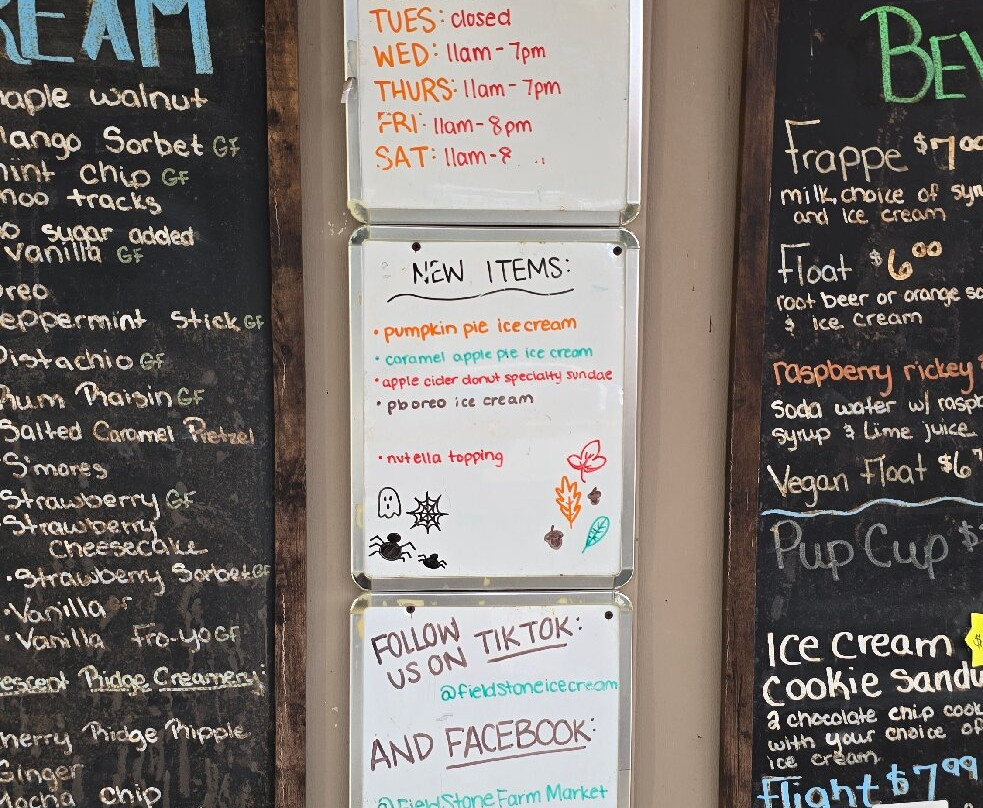 REAM
maple walnut
Mango Sorbet GF
mint chip GF
moo tracks
no sugar added
Vanilla GF
oreo
Peppermint Stick GF
Pistachio GF
Rum Raisin GF
Salted Caramel Pretzel
S'mores
Strawberry GF
Strawberry
Cheesecake
·Strawberry Sorbet GF
·Vanilla
·Vanilla Fro-yo GF
Crescent Ridge Creamery
Cherry Ridge Ripple
Ginger
Mocha chip
TUES: closed
WED: 11am-7pm
THURS: 11am-7pm
FRI: 11am-8pm
SAT: 11am-8
NEW ITEMS:
·pumpkin pie ice cream
·caramel apple pie ice cream
·apple cider donut specialty sundae
·pb oreo ice cream
·nutella topping
FOLLOW
US ON TIKTOK:
@fieldstoneicecream
AND FACEBOOK:
@FieldStone Farm Market
BEV
Frappe $7.00
milk, choice of syr
and ice cream
Float $6.00
root beer or orange so
& ice cream
raspberry rickey
soda water w/ raspb
syrup & lime juice
Vegan Float $6
Pup Cup $
Ice Cream
Cookie Sandw
2 chocolate chip cook
with your choice of
ice cream
Flight $7.99